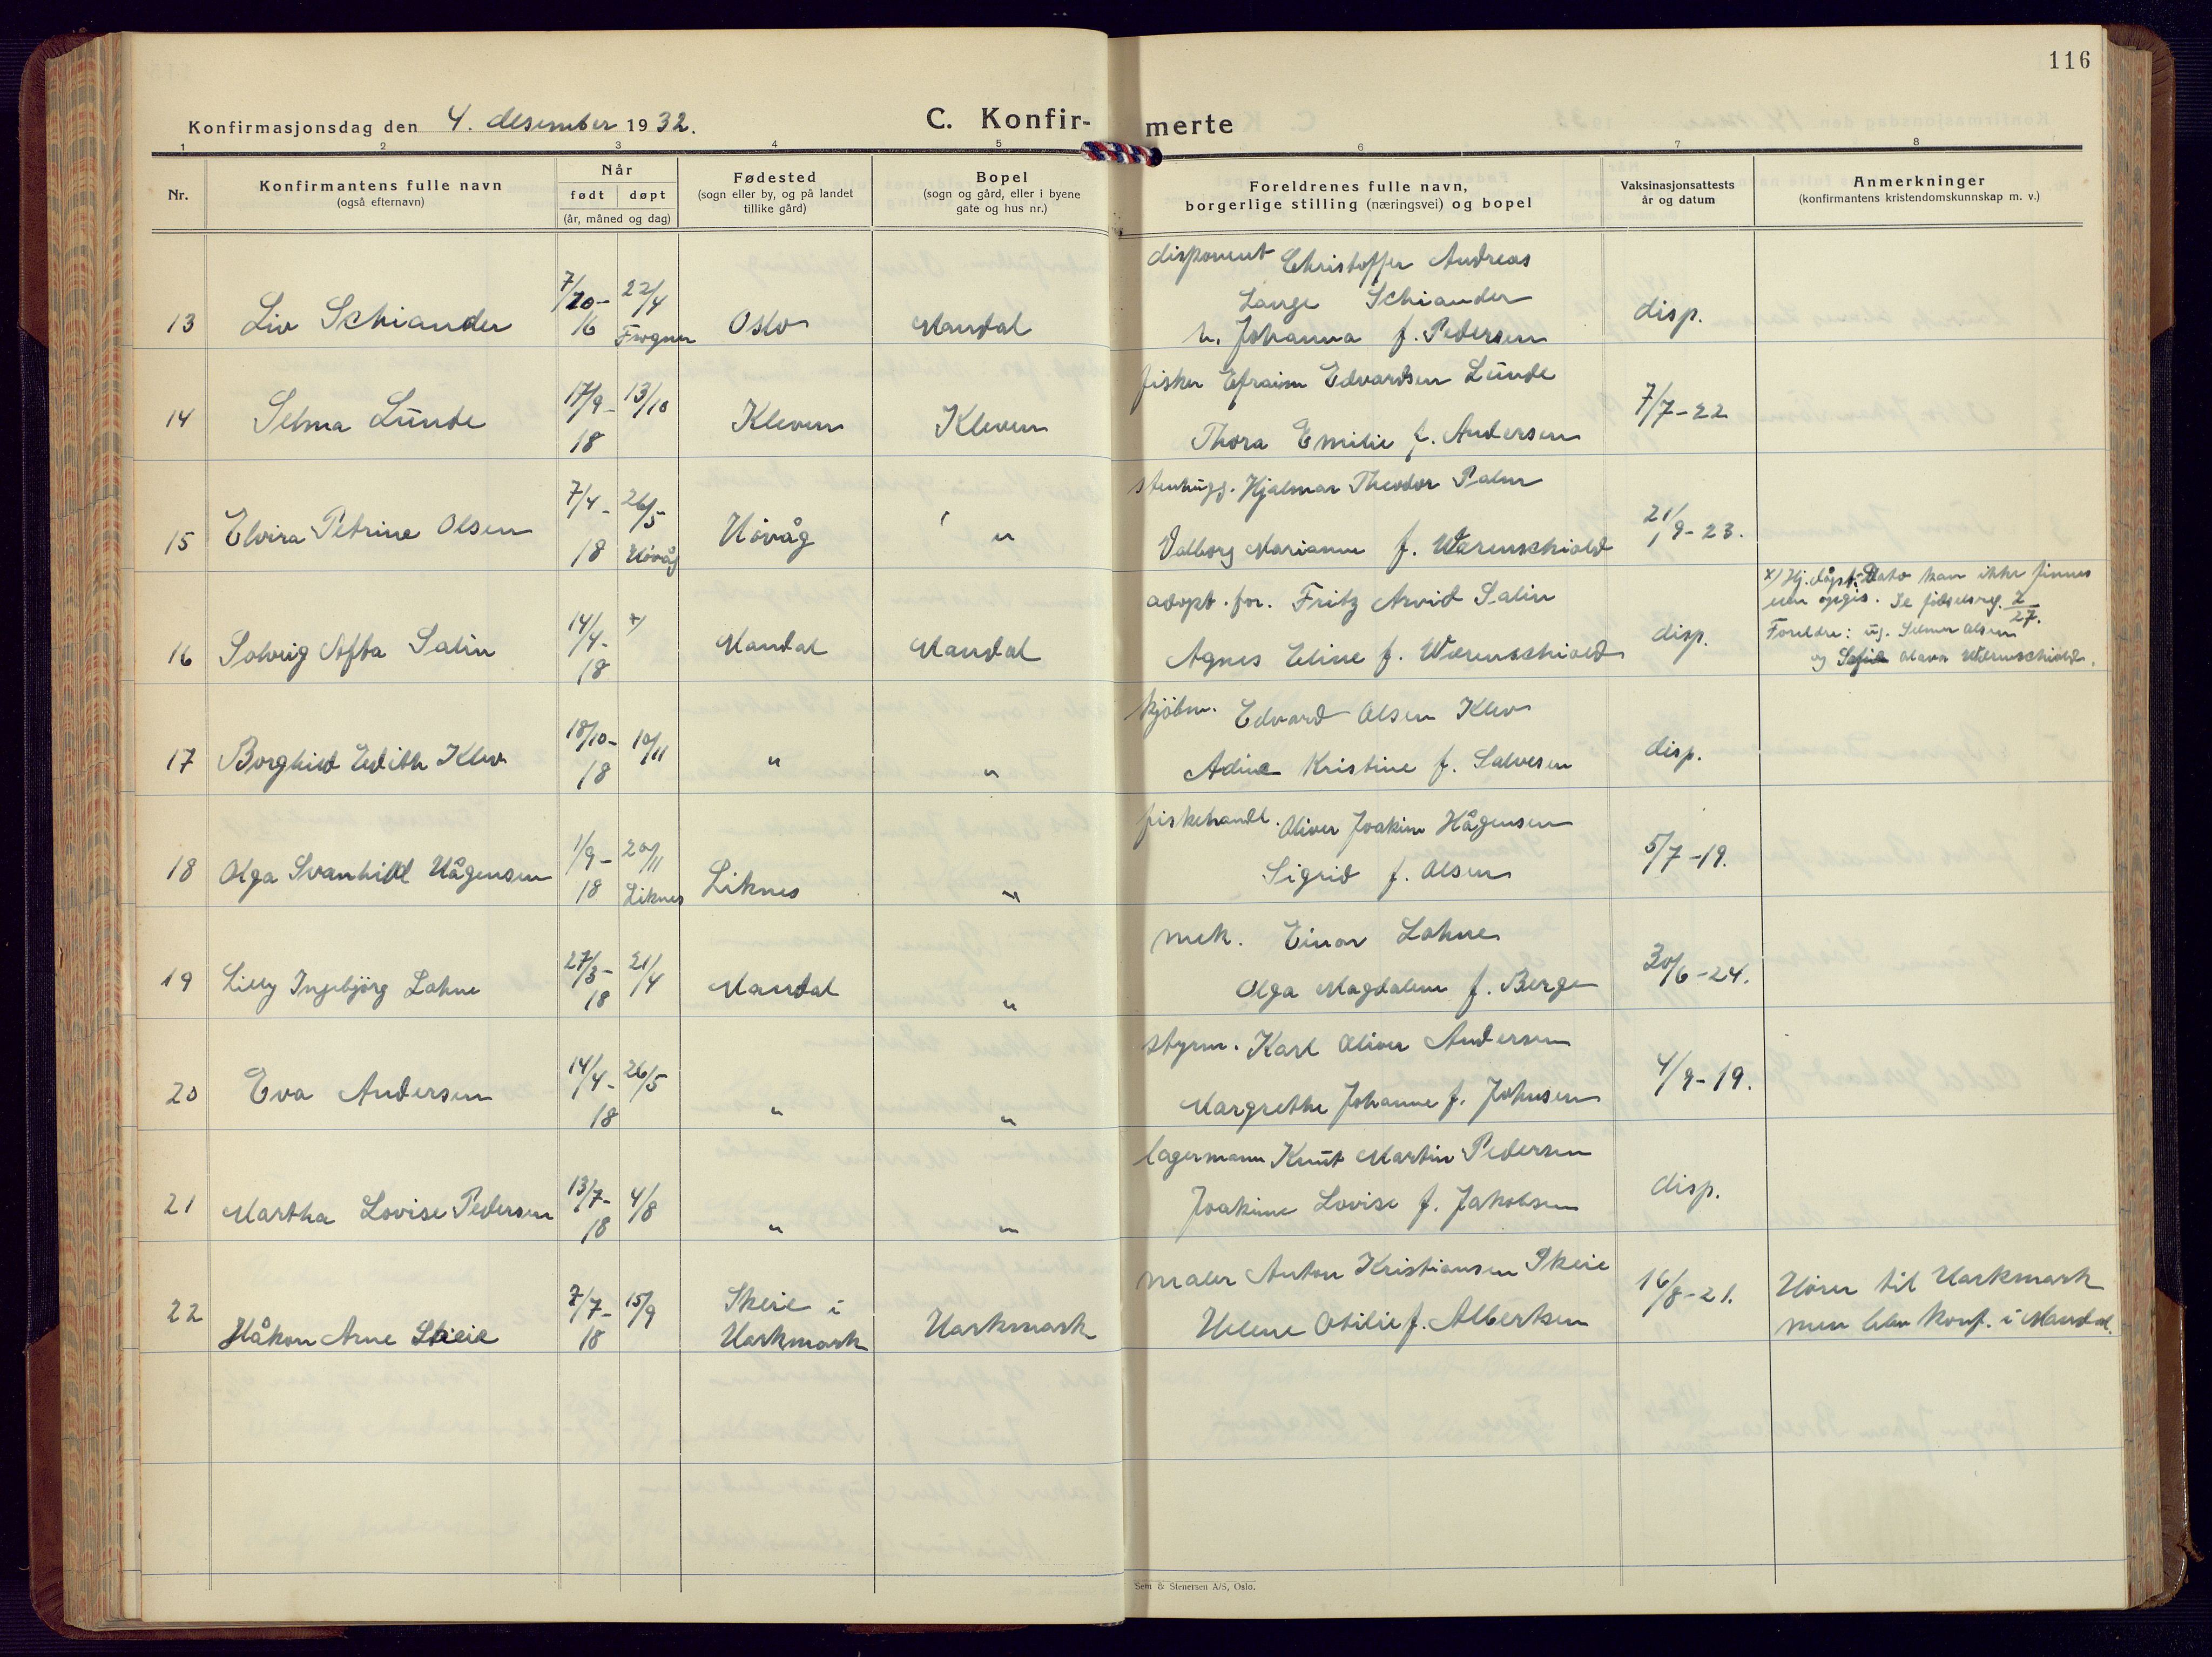 116
Konfirmasjonsdag den 4. desember 1932.
C. Konfir-merte
1 2 3 4 5 6 7 8
Nr.
Konfirmantens fulle navn
(også efternavn)
Når
født døpt
(år, måned og dag)
Fødested
(sogn eller by, og på landet
tillike gård)
Bopel
(sogn og gård, eller i byene
gate og hus nr.)
Foreldrenes fulle navn,
borgerlige stilling (næringsvei) og bopel
Vaksinasjonsattests
år og datum
Anmerkninger
(konfirmantens kristendomskunnskap m. v.)
disponent Christoffer Andreas
Lange Schiander
13 Liv Schiander 7/10-16 22/4 Frogner Oslo Mandal
h. Johanna f. Pedersen disp.
fisker Efraim Edvardsen Lunde
14 Selma Lunde 17/9-18 13/10 Kleven Kleven
Thora Emilie f. Andersen 7/7-22
stenhugg. Hjalmar Theodor Palm
15 Elvira Petrine Olsen 7/4-18 26/5 Høvåg Høvåg "
Valborg Marianne f. Wærenschiold 21/9-23.
adopt. for. Fritz Arvid Salin
16 Solveig Asta Salin 14/4-18 x) Mandal Mandal
Agnes Eline f. Wærenschiold disp.
x) Hj.døpt. Dato kan ikke finnes
eller opgis. Se fødselsreg. 2/27.
Foreldre: ug. Selmer Olsen
og Sofie Olava Wærnschiold.
kjøbm. Edvard Olsen Klev
17 Borghild Edith Klev 18/10-18 10/11 " "
Adine Kristine f. Salvesen disp.
fiskehandl. Oliver Joakim Hågensen
18 Olga Svanhild Hågensen 1/9-18 20/11 Liknes Liknes "
Sigrid f. Olsen 5/7-19.
mek. Einar Lohne
19 Lilly Ingebjörg Lohne 27/3-18 21/4 Mandal "
Olga Magdalene f. Berge 30/6-24.
styrm. Karl Oliver Andersen
20 Eva Andersen 14/4-18 26/5 " "
Margrethe Johanne f. Johnsen 4/9-19.
lagermann Knut Martin Pedersen
21 Martha Lovise Pedersen 13/7-18 4/8 " "
Joakime Lovise f. Jakobsen disp.
maler Anton Kristiansen Skeie
22 Håkon Arne Skeie 7/7-18 15/9 Skeie i Harkmark Harkmark
Helene Otilie f. Albertsen 16/8-21.
Hører til Harkmark
men blev konf. i Mandal.
Sem & Stenersen A/S, Oslo.